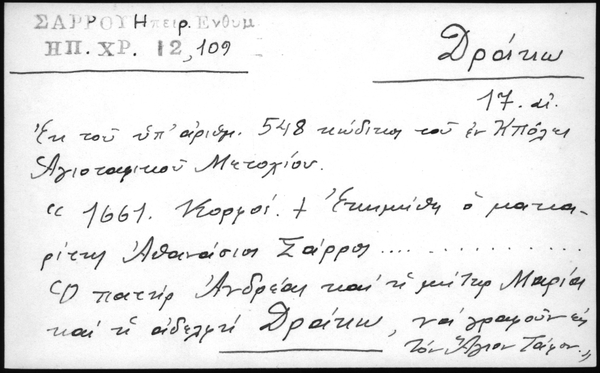 ΣΑΡΡΟΥ Ηπειρ. Ενθυμ
ΗΠ. ΧΡ. 12, 109
Δράκω
17. αἰ.
Ἐκ τοῦ ὑπ' ἀριθμ. 548 κώδικος τοῦ ἐν Κπόλει
Ἁγιοταφικοῦ Μετοχίου.
" 1661. Κορμοί. + Ἐκημίθη ὁ μακα-
ρίτης Ἀθανάσιος Σάρρος .... ..........
Ὁ πατήρ Ἀνδρέας καί ἡ μήτηρ Μαρία
καί ἡ ἀδελφή Δράκω, νά γραφοῦν εἰς
τόν Ἅγιον Τάφον."